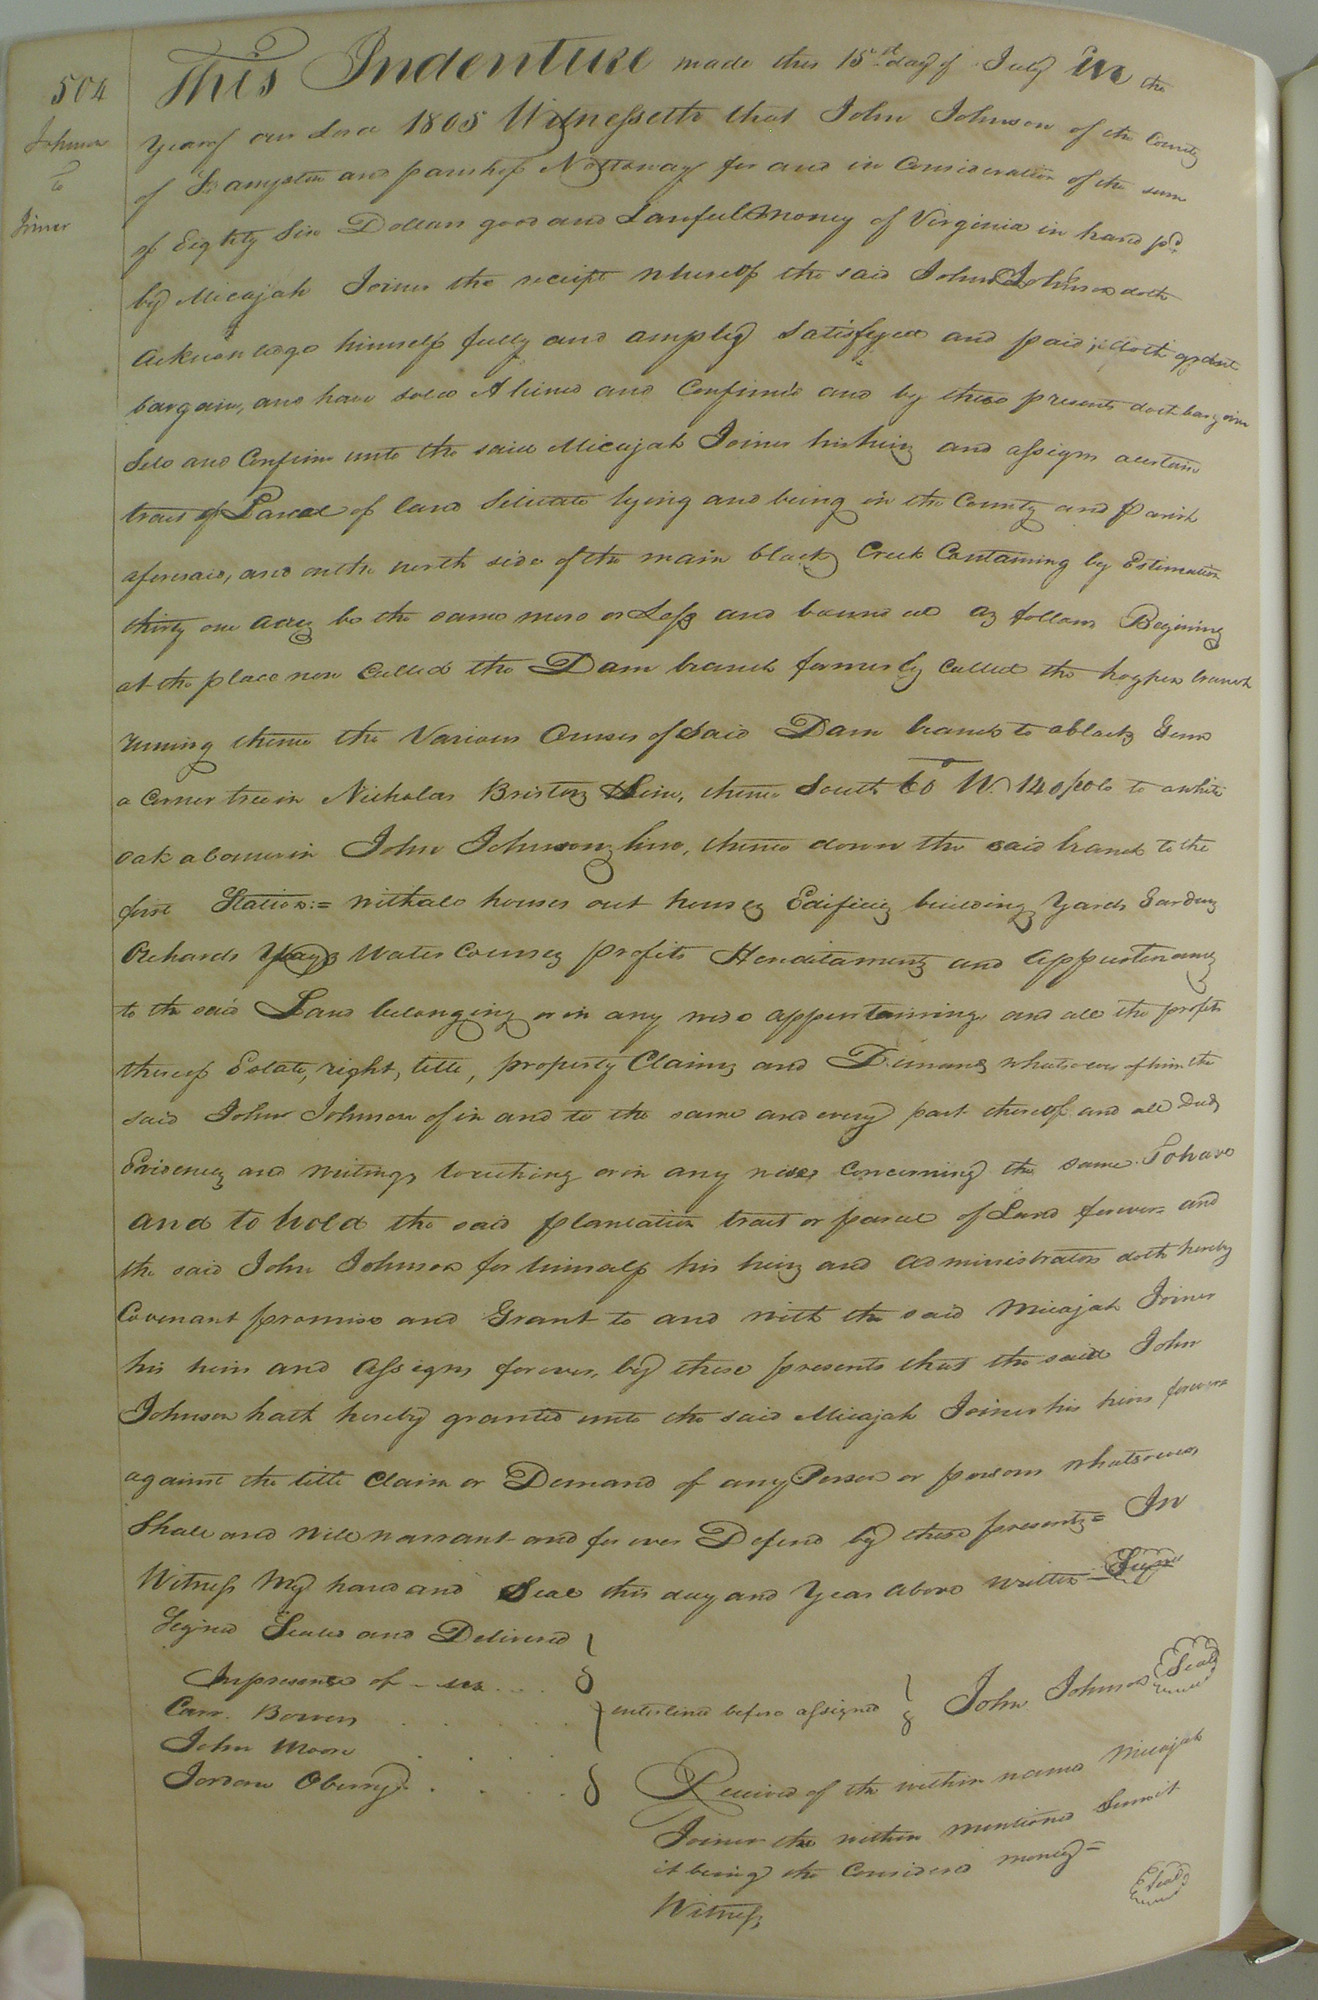 504
Johnson
To
Joiner
This Indenture made this 15st day of July in the
Year of our Lord 1805 Witnesseth that John Johnson of the County
of Sampton and parish of Nottoway for and in Consideration of the sum
of Eighty Six Dollars good and Lawful Money of Virginia in hand pd
by Micajah Joiner the receipt whereof the said John Johnson doth
acknowledge himself fully and amply Satisfyed and paid, doth grant
bargain, and have sold Aliened and Confirm'd and by these presents doth bargain
Sele and Confirm unto the said Micajah Joiner his heirs and assigns a certain
tract of Parcel of land Situate lying and being in the County and Parish
aforesaid, and on the north side of the main black Creek Containing by Estimation
thirty one Acres be the same more or Less and bound ed as follows Begining
at the place now Called the Dam branch formerly Called the hogpen branch
runing thence the Various Courses of said Dam branch to a black Gum
a Corner tree in Nicholas Bristers Line, thence South 60° W. 140 pole to a white
oak a Corner in John Johnsons line, thence down the said branch to the
first Station:= with all houses out houses Edifices buildings Yards Gardens
Orchards Ways Water Courses profits Hereditaments and Appurtenances
to the said Land belonging or in any wise appertaining and all the profits
thereof Estate, right, title, property Claims and Demands whatsoever of him the
said John Johnson of in and to the same and every part thereof and all Deeds
Evidences and writings touching or in any wise concerning the same. To have
and to hold the said plantation tract or parcel of Land forever= and
the said John Johnson for himself his heirs and administrators doth hereby
Covenant promise and Grant to and with the said Micajah Joiner
his heirs and Assigns forever, by these presents that the said John
Johnson hath hereby granted unto the said Micajah Joiner his heirs forever
against the title Claim or Demand of any Person or persons whatsoever
Shall and will warrant and for ever Defend by these presents= In
Witness My hand and Seal this day and Year above written
Signed Sealed and Delivered
In presence of
Carr. Bowers
John Moore
Jordan Oberry
enterlined before assigned
John Johnson Seal
Received of the within named Micajah
Joiner the within mentioned Sum it
it being the Considerd money=
Witness
Seal